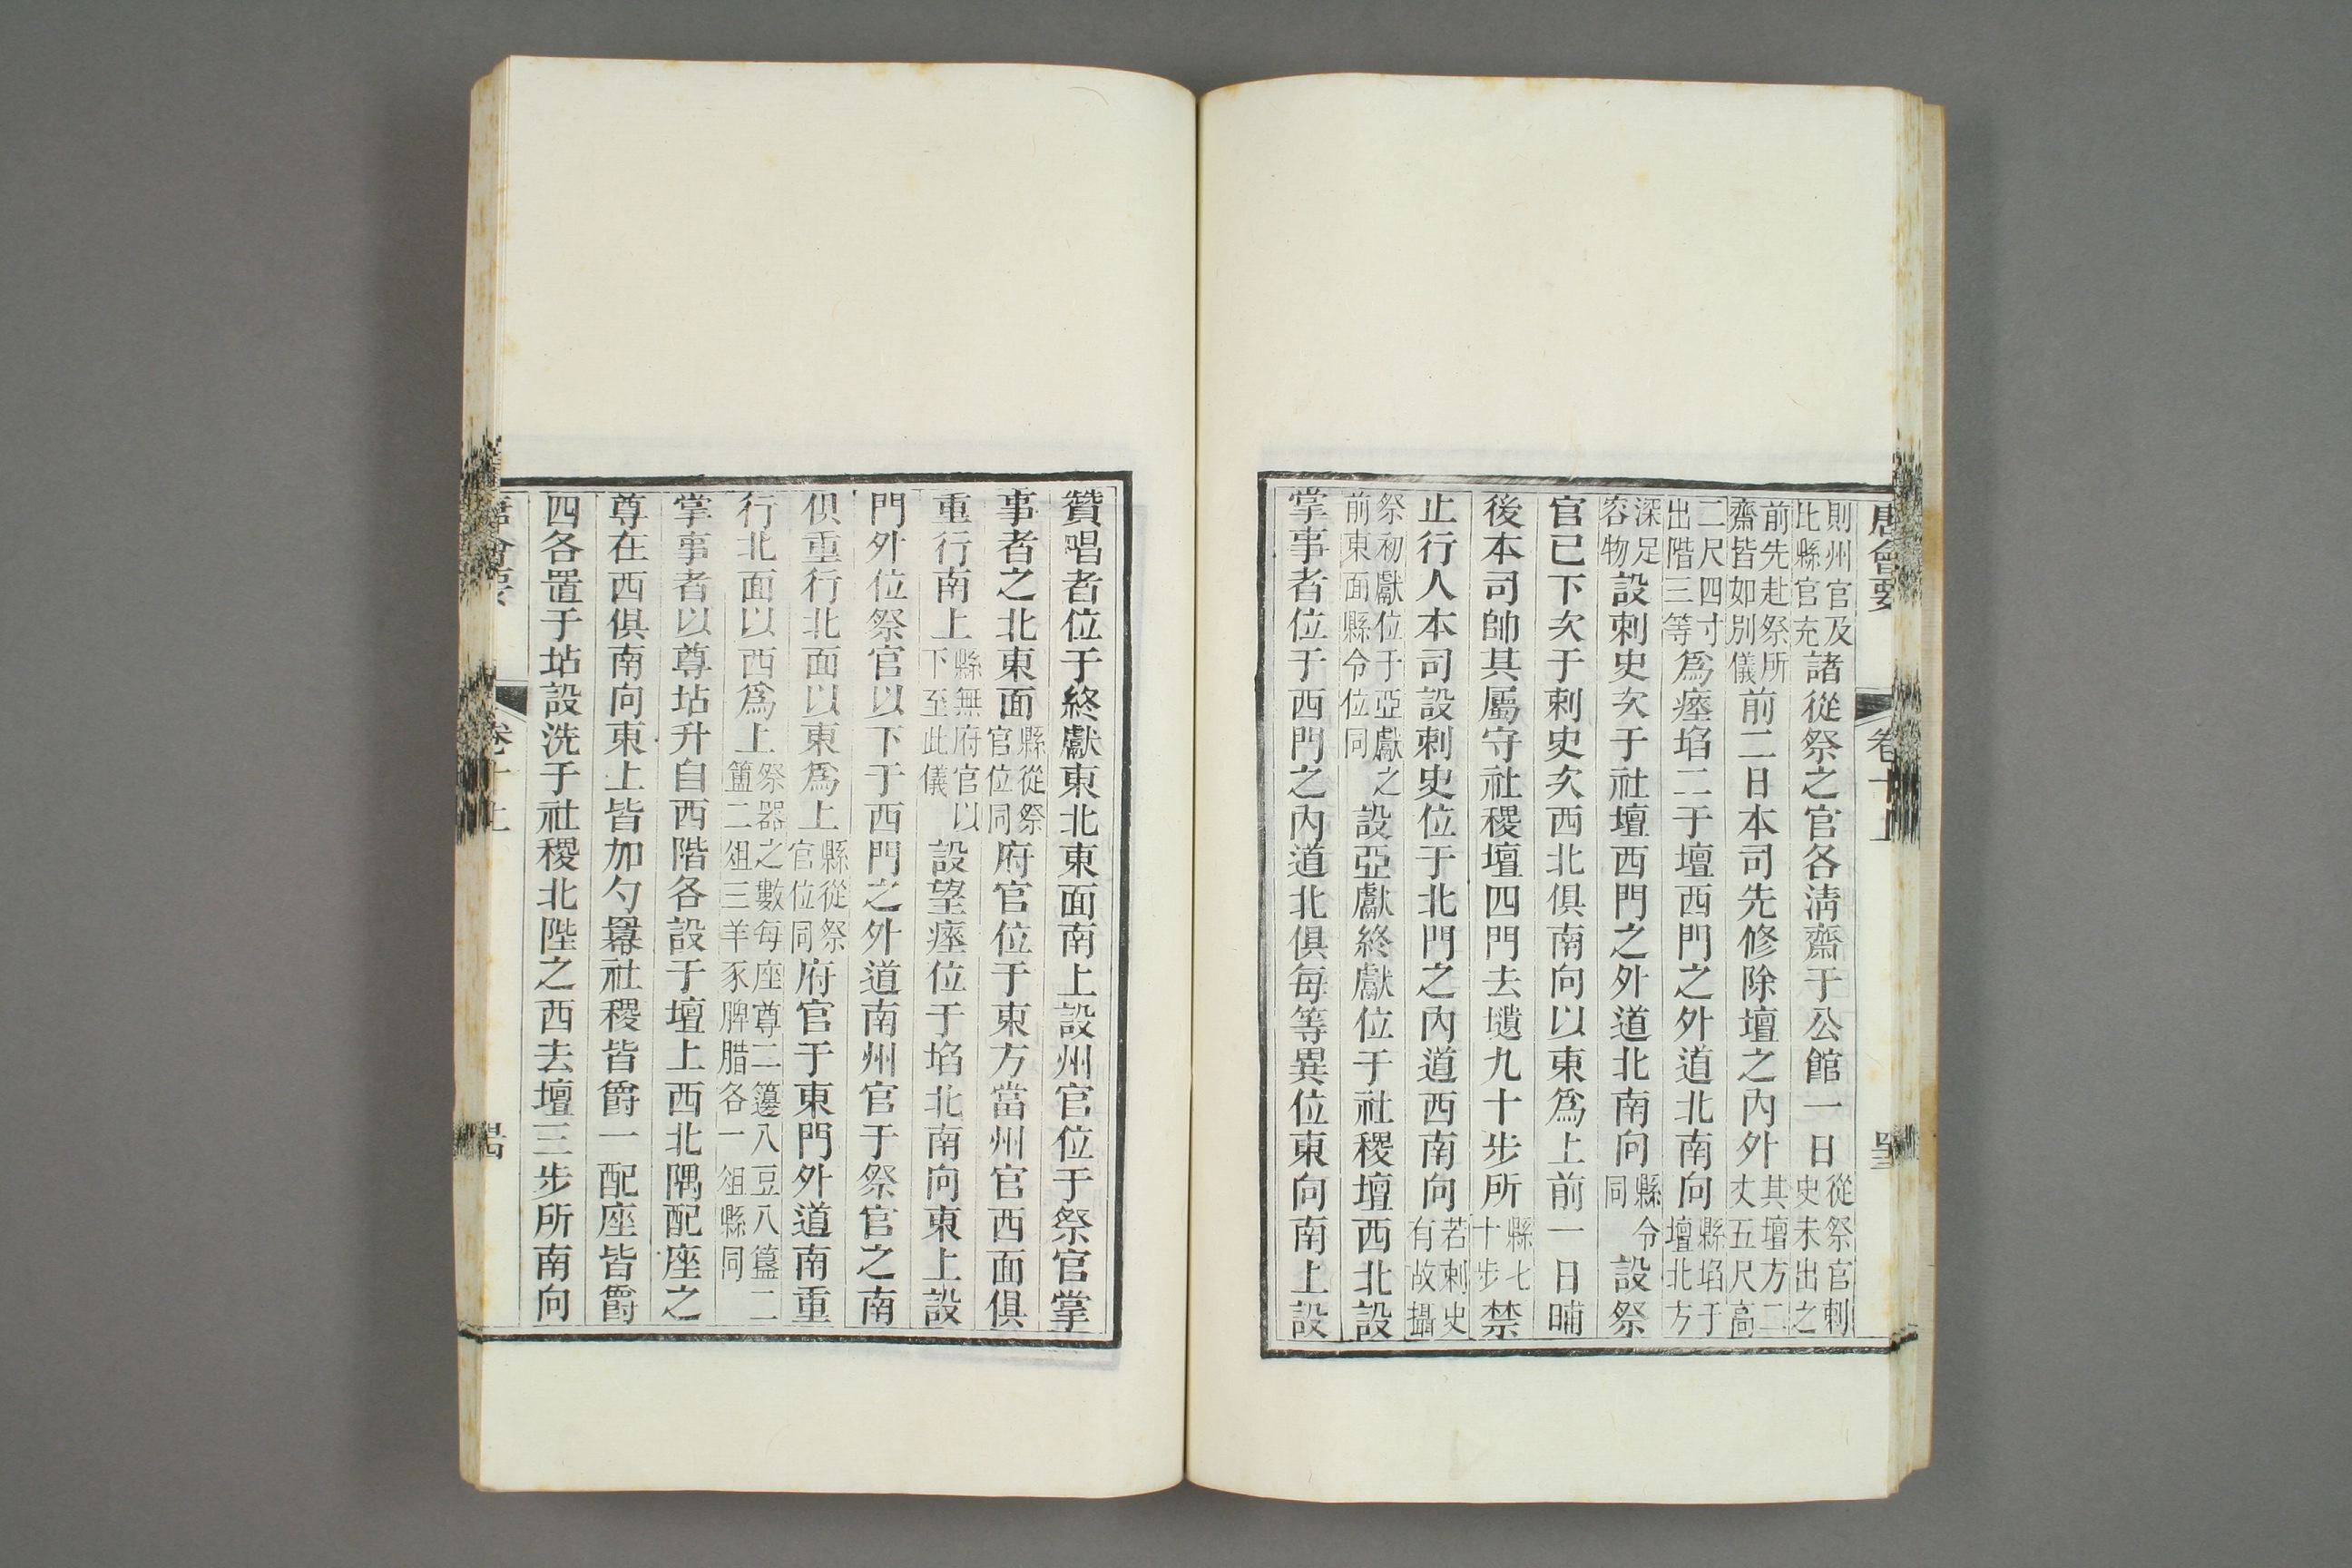 唐會要 卷十上
則州官及比縣官充諸從祭之官各淸齋于公館一日從祭官刺史未出之
前先赴祭所齋皆如別儀前二日本司先修除壇之內外其壇方二丈五尺高
二尺四寸出階三等爲瘞埳二于壇西門之外道北南向縣埳于壇北方
深足容物設刺史次于社壇西門之外道北南向縣令同設祭
官已下次于刺史次西北俱南向以東爲上前一日晡
後本司帥其屬守社稷壇四門去壝九十步所縣七十步禁
止行人本司設刺史位于北門之內道西南向若刺史有故攝
祭初獻位于亞獻之前東面縣令位同設亞獻終獻位于社稷壇西北設
掌事者位于西門之內道北俱每等異位東向南上設
贊唱者位于終獻東北東面南上設州官位于祭官掌
事者之北東面縣從祭官位同府官位于東方當州官西面俱
重行南上縣無府官以下至此儀設望瘞位于埳北南向東上設
門外位祭官以下于西門之外道南州官于祭官之南
俱重行北面以東爲上縣從祭官位同府官于東門外道南重
行北面以西爲上祭器之數每座尊二籩八豆八簋二簠二俎三羊豕脾腊各一俎縣同
掌事者以尊坫升自西階各設于壇上西北隅配座之
尊在西俱南向東上皆加勺羃社稷皆爵一配座皆爵
四各置于坫設洗于社稷北陛之西去壇三步所南向
唐會要 卷十上